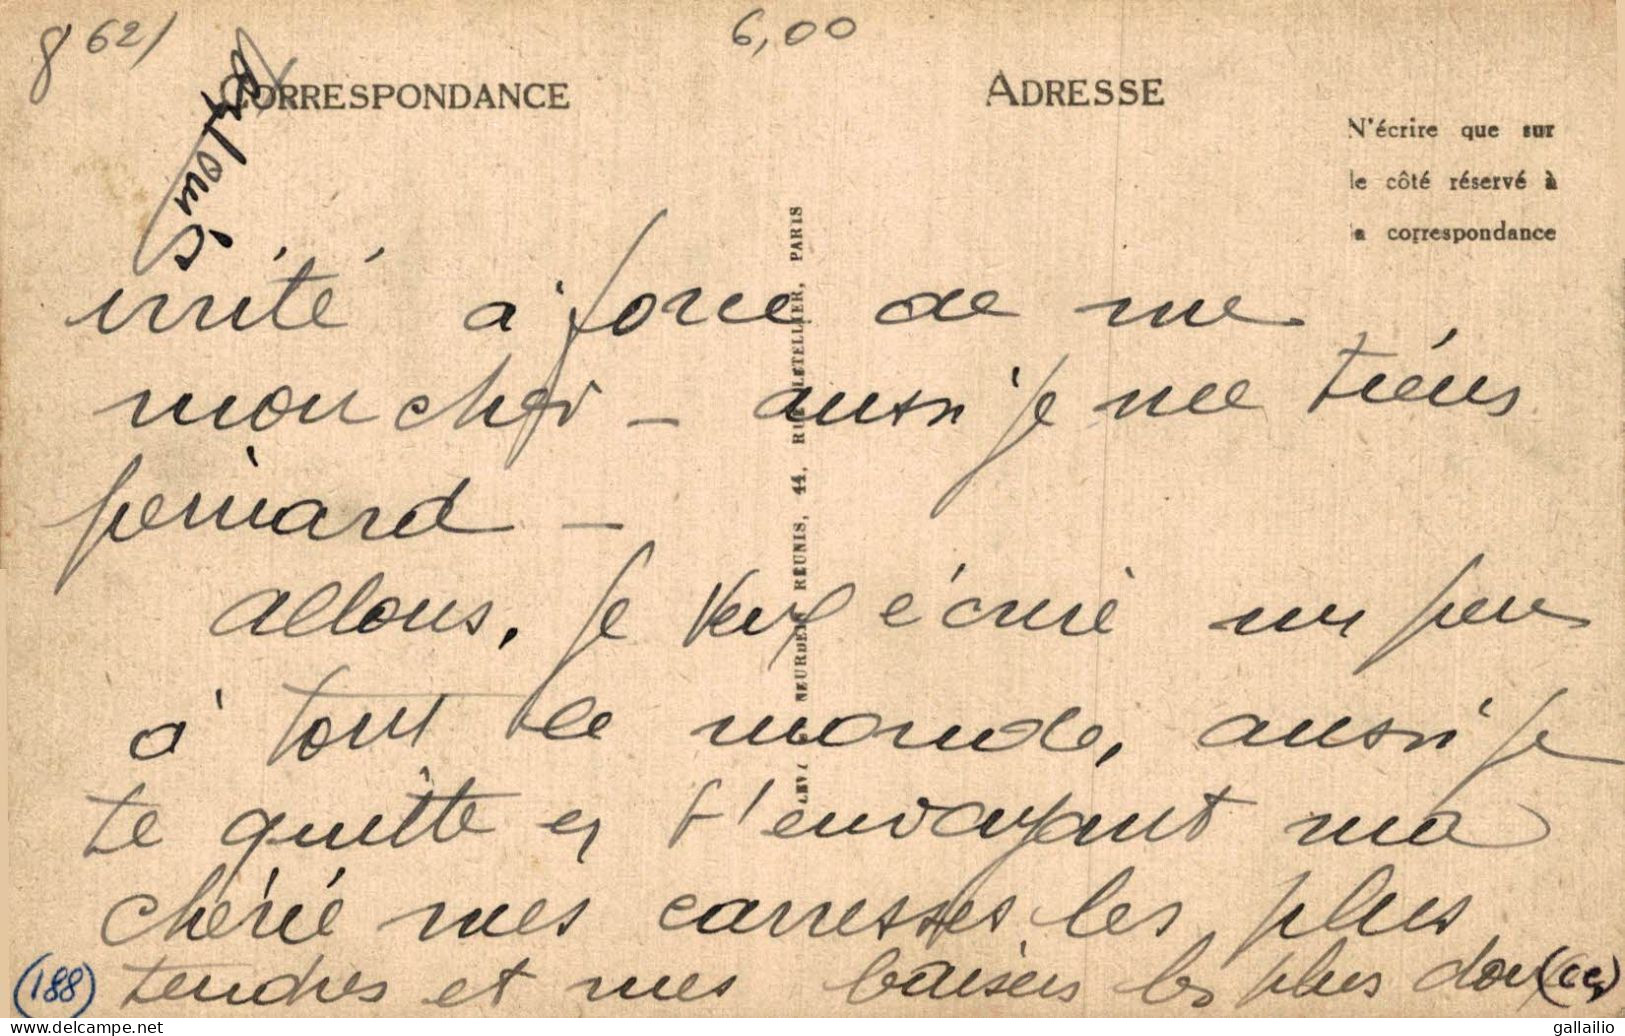 862)
6,00
CORRESPONDANCE
ADRESSE
N'écrire que sur
le côté réservé à
la correspondance
irrité à force de me
moucher - aussi je me tiens
peinard -
allons, je veux écrire un peu
à tout le monde, aussi je
te quitte en t'envoyant ma
chérie mes carresses les plus
tendres et mes baisers les plus doux
(188)
NEURDEIN RÉUNIS, 44, RUE LETELLIER, PARIS
gallailio